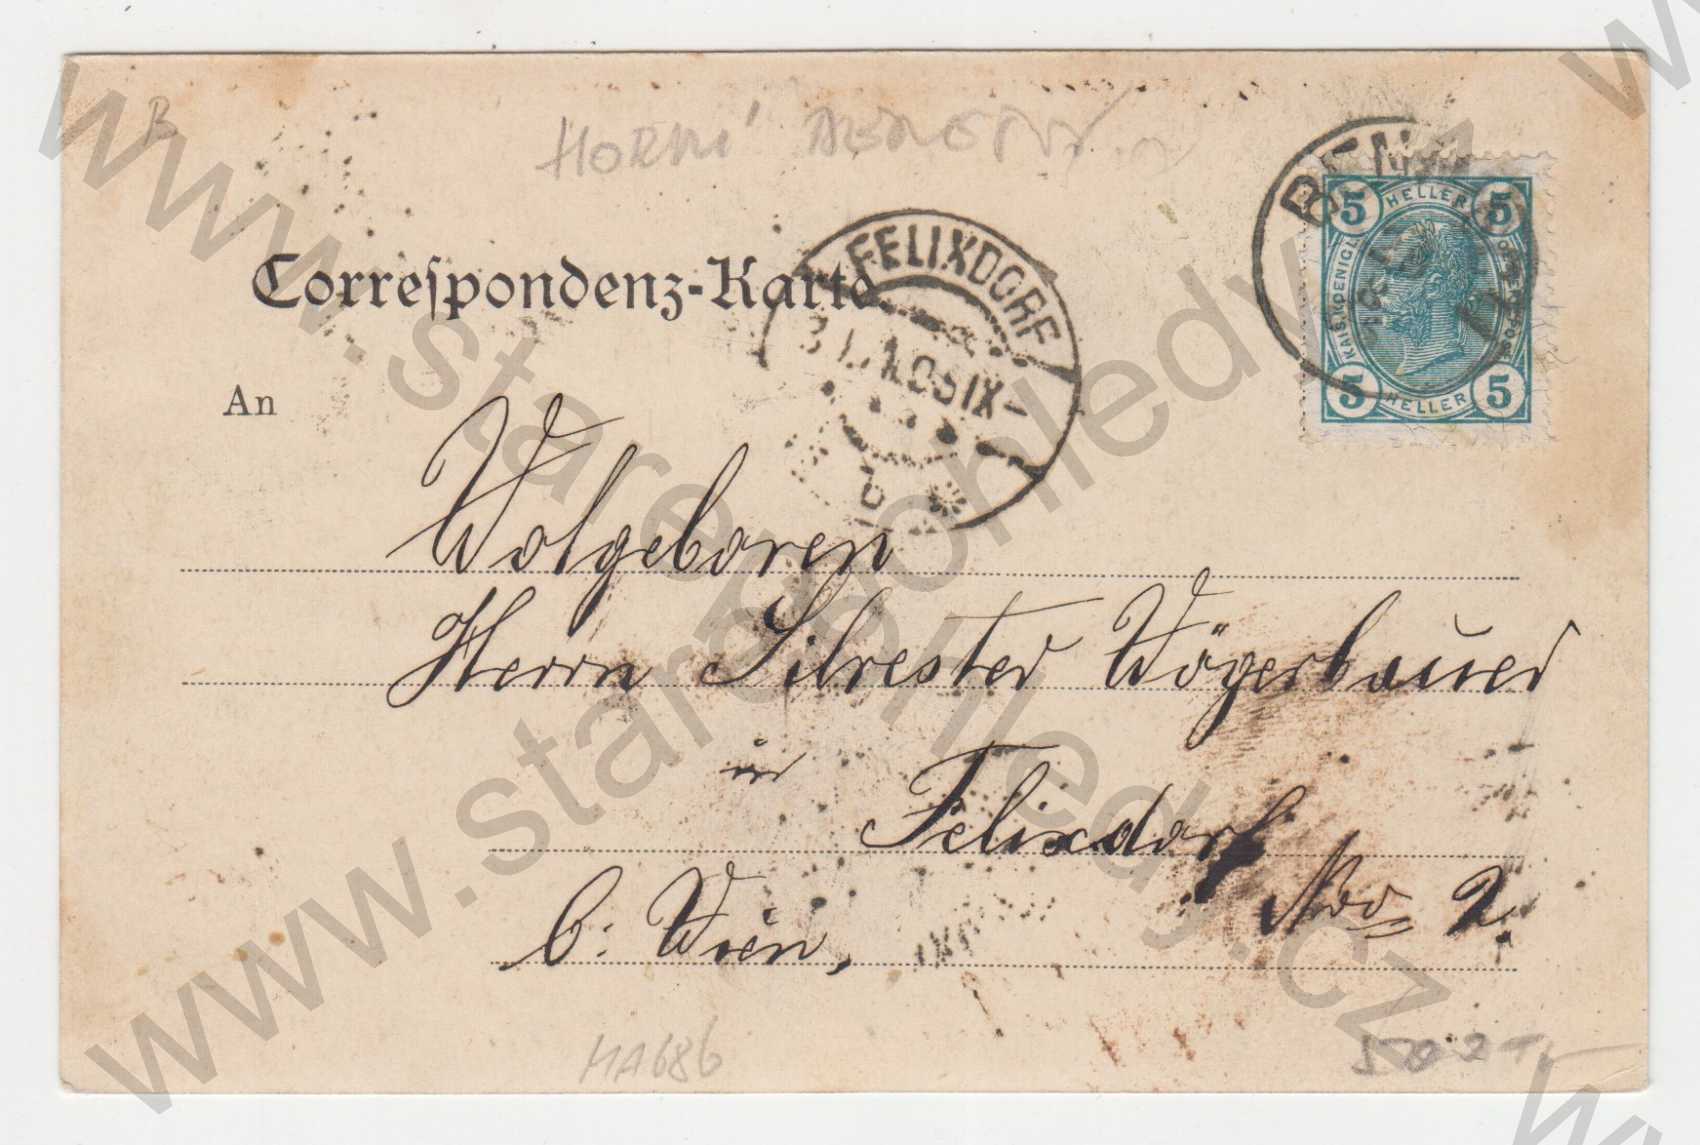 B
HORNÍ
Correspondenz-Karte.
FELIXDORF
31. 1. 05 IX-
b *
BEN
5 HELLER 5
KAIS. KOENIGL.
5 HELLER 5
An
Wolgeboren
Herrn Silvester Wögerbauer
in
Felixdorf
b: Wien,
Nro 2.
MA686
www.starepohledy.cz
www.starepohledy.cz